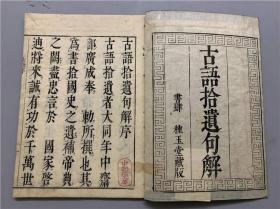 古語拾遺句解
書肆 棟玉堂藏版
古語拾遺句解序
古語拾遺者大同年中齋
部廣成奉 勅所撰也其
爲書拾國史之遺補帝典
之闕盡忠言於 國家啓
迪將來誠有功於千萬世